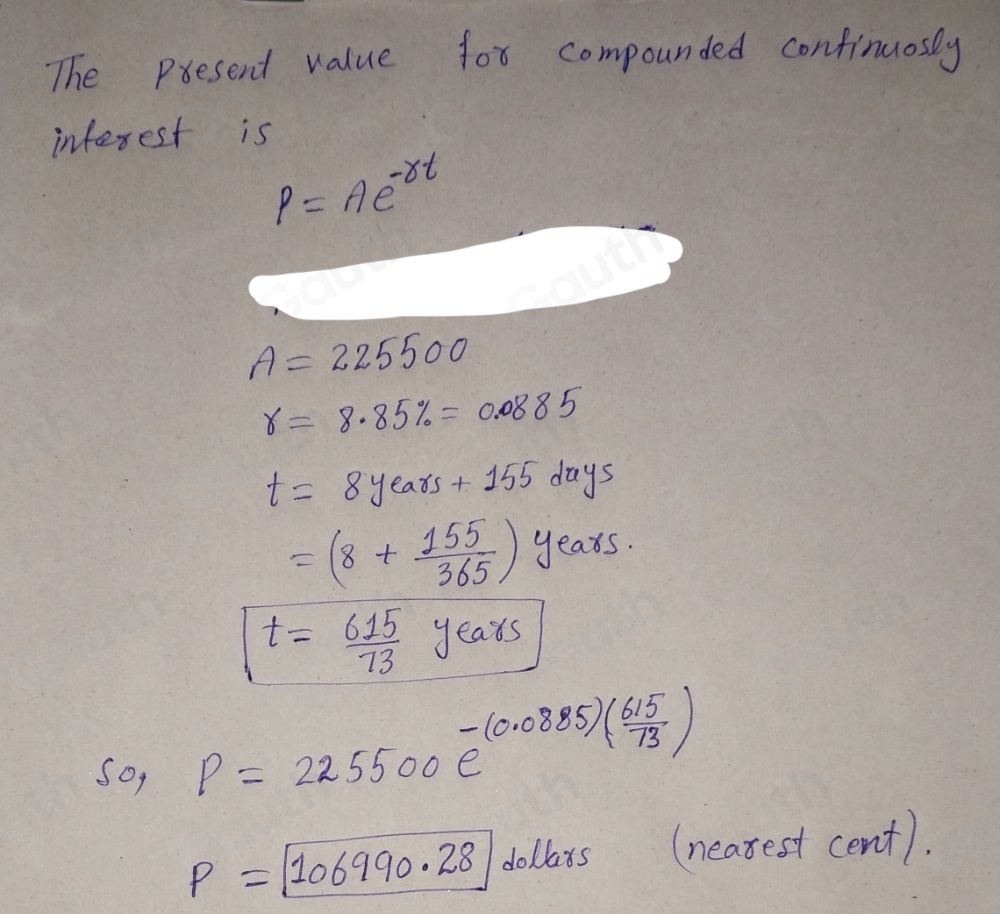 The present value for compounded continuosly
interest is
P = Ae^-rt
A = 225500
r = 8.85% = 0.0885
t = 8 years + 155 days
= (8 + 155/365) years.
t = 615/73 years
So, P = 225500 e^-(0.0885)(615/73)
P = 106990.28 dollars (nearest cent).